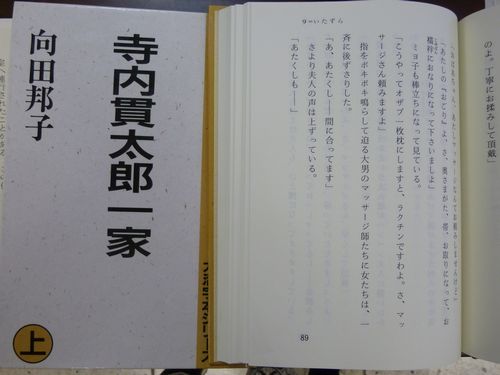 寺内貫太郎一家
向田邦子
上
のよ。丁寧にお揉みして頂戴」
9=いたずら
「おばあちゃん、あたしマッサージなんてお頼みしませんけど」
「あたしの『おごり』よ、さ、奥さまがた、帯、お取りになって、お
襦袢におなりになって下さいましよ」
ミヨ子も棒立ちになって見ている。
「こうやってオザブ一枚枕にしますと、ラクチンですわよ。さ、マッ
サージさん頼みますよ」
指をボキボキ鳴らして迫る大男のマッサージ師たちに女たちは、一
斉に後ずさりした。
「あ、あたくし――間に合ってます」
さより夫人の声は上ずっている。
「あたくしも――」
89